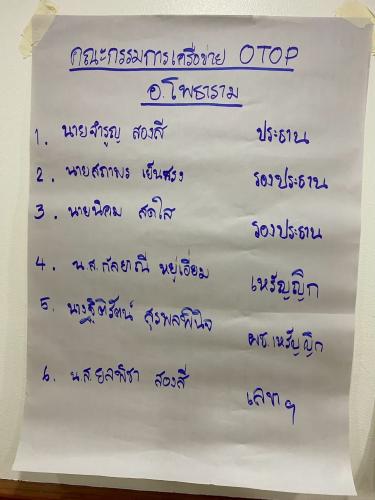 คณะกรรมการเครือข่าย OTOP
อ.โพธาราม
1. นายจำรูญ สองสี ประธาน
2. นายสถาพร เย็นสรง รองประธาน
3. นายนิคม สดใส รองประธาน
4. น.ส.กัลยาณี หยู่เอี่ยม เหรัญญิก
5. นางฐิติรัตน์ สุรพลพินิจ ผช.เหรัญญิก
6. น.ส.ยลพิชา สองสี เลขาฯ